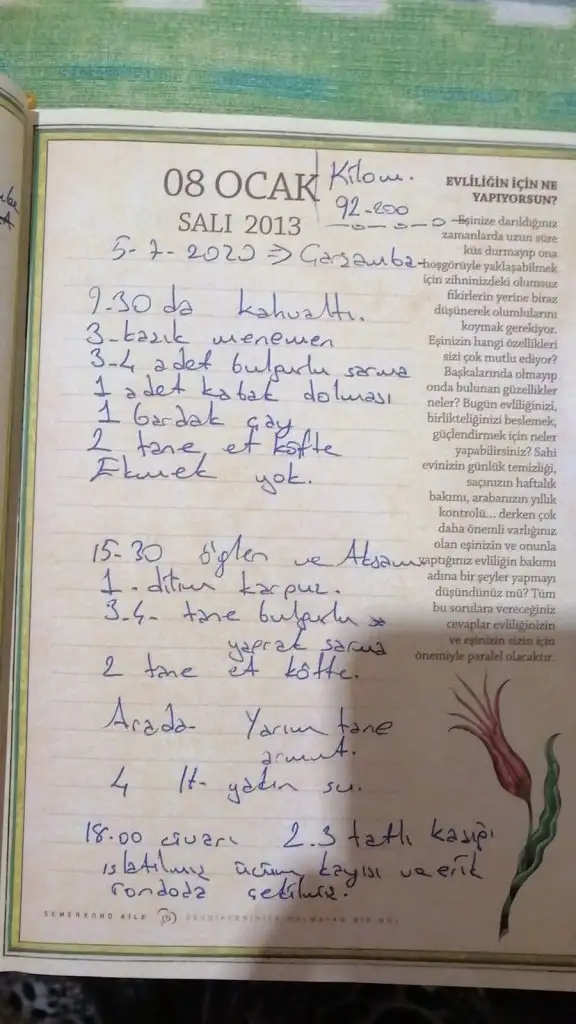 08 OCAK
SALI 2013
Kilom.
92-200
5-7-2020 ⇒ Çarşamba
9.30 da kahvaltı.
3-kaşık menemen
3-4 adet bulgurlu sarma
1 adet kabak dolması
1 bardak çay
2 tane et köfte
Ekmek yok.
15-30 öğlen ve Akşam
1. dilim karpuz.
3-4- tane bulgurlu
yaprak sarma
2 tane et köfte.
Arada Yarım tane
armut.
4 lt- yakın su.
18.00 civarı 2.3 tatlı kaşığı
ıslatılmış üzüm, kayısı ve erik
rondoda çekilmiş.
EVLİLİĞİN İÇİN NE
YAPIYORSUN?
Eşinize darıldığınız
zamanlarda uzun süre
küs durmayıp ona
hoşgörüyle yaklaşabilmek
için zihninizdeki olumsuz
fikirlerin yerine biraz
düşünerek olumlularını
koymak gerekiyor.
Eşinizin hangi özellikleri
sizi çok mutlu ediyor?
Başkalarında olmayıp
onda bulunan güzellikler
neler? Bugün evliliğinizi,
birlikteliğinizi beslemek,
güçlendirmek için neler
yapabilirsiniz? Sahi
evinizin günlük temizliği,
saçınızın haftalık
bakımı, arabanızın yıllık
kontrolü... derken çok
daha önemli varlığınız
olan eşinizin ve onunla
yaptığınız evliliğin bakımı
adına bir şeyler yapmayı
düşündünüz mü? Tüm
bu sorulara vereceğiniz
cevaplar evliliğinizin
ve eşinizin sizin için
önemiyle paralel olacaktır.
SEMERKAND AİLE